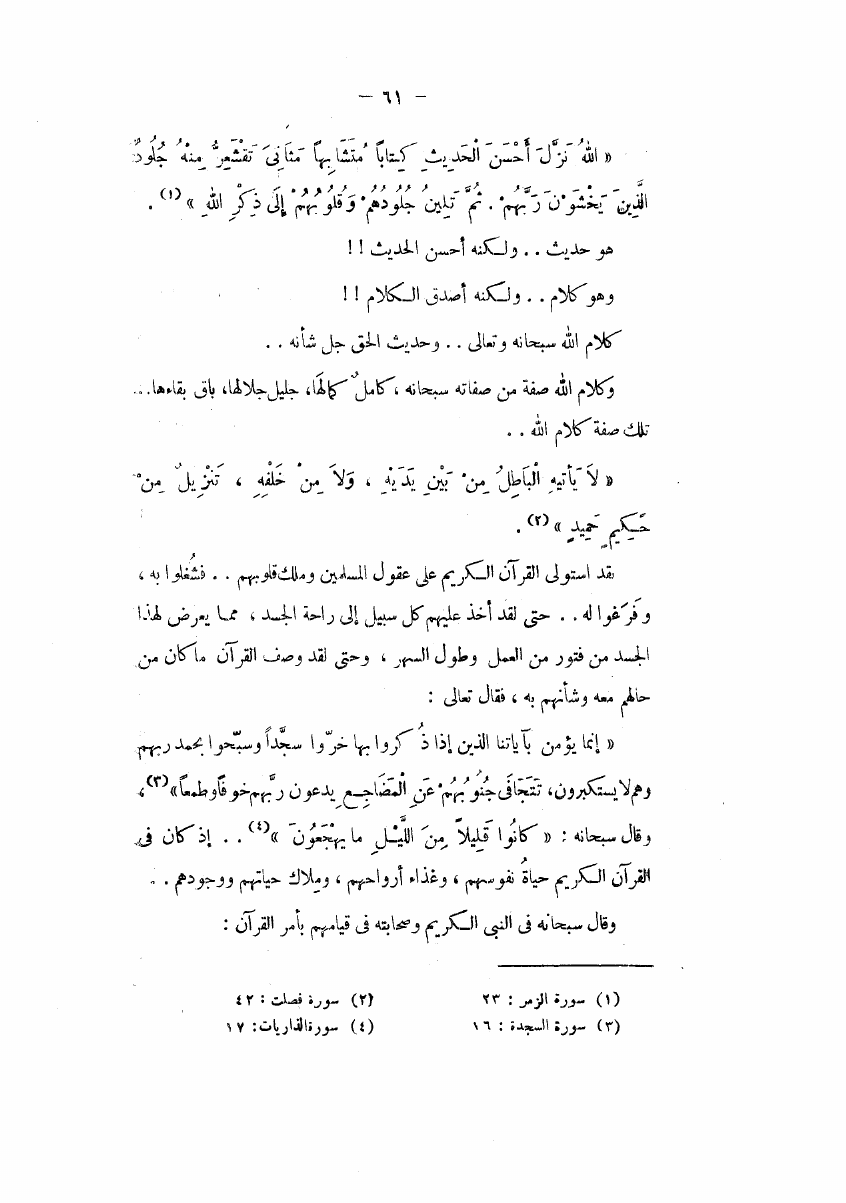 — ٦١ —
« اللهُ نَزَّلَ أَحْسَنَ الْحَدِيثِ كِتَاباً مُتَشَابِهاً مَثَانِىَ تَقْشَعِرُّ مِنْهُ جُلُودُ
الَّذِينَ يَخْشَوْنَ رَبَّهُمْ . ثُمَّ تَلِينُ جُلُودُهُمْ وَقُلُوبُهُمْ إِلَى ذِكْرِ اللهِ »(١) .
هو حديث . . ولكنه أحسن الحديث ! !
وهو كلام . . ولكنه أصدق الكلام ! !
كلام الله سبحانه وتعالى . . وحديث الحق جل شأنه . .
وكلام الله صفة من صفاته سبحانه ، كاملٌ كمالهَا، جليل جلالها، باق بقاءها...
تلك صفة كلام الله . .
« لاَ يَأتيهِ الْبَاطِلُ مِنْ بَيْنِ يَدَيْهِ ، وَلاَ مِنْ خَلْفِهِ ، تَنْزِيلٌ مِنْ
حَكِيمٍ حَمِيدٍ »(٢) .
لقد استولى القرآن الكريم على عقول المسلمين وملك قلوبهم . . فشُغلوا به ،
وفَرَغوا له . . حتى لقد أخذ عليهم كل سبيل إلى راحة الجسد ، مما يعرض لهذا
الجسد من فتور من العمل وطول السهر ، وحتى لقد وصف القرآن ما كان من
حالهم معه وشأنهم به ، فقال تعالى :
« إنما يؤمن بآياتنا الذين إذا ذُكروا بها خرّوا سجَّداً وسبّحوا بحمد ربهم
وهم لا يستكبرون، تَتَجَافَى جُنُوبُهُمْ عَنِ الْمَضَاجِعِ يدعون ربَّهم خوفًا وطمعاً»(٣)،
وقال سبحانه : « كَانُوا قَلِيلاً مِنَ اللَّيْلِ ما يهْجَعُونَ »(٤) . . إذ كان فى
القرآن الكريم حياةُ نفوسهم ، وغذاء أرواحهم ، ومِلاك حياتهم ووجودهم . .
وقال سبحانه فى النبى الكريم وصحابته فى قيامهم بأمر القرآن :
(١) سورة الزمر : ٢٣ (٢) سورة فصلت : ٤٢
(٣) سورة السجدة : ١٦ (٤) سورة الذاريات : ١٧